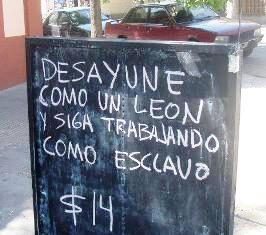 DESAYUNE
COMO UN LEON
Y SIGA TRABAJANDO
COMO ESCCAVO
$14